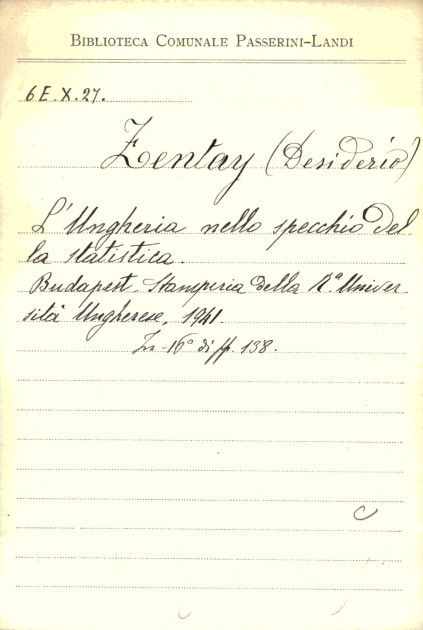 BIBLIOTECA COMUNALE PASSERINI-LANDI
6 E. X. 27.
Zentay (Desiderio)
L'Ungheria nello specchio del
la statistica.
Budapest. Stamperia della R.ª Univer-
sità Ungherese, 1941.
In-16° di pp. 138.
C